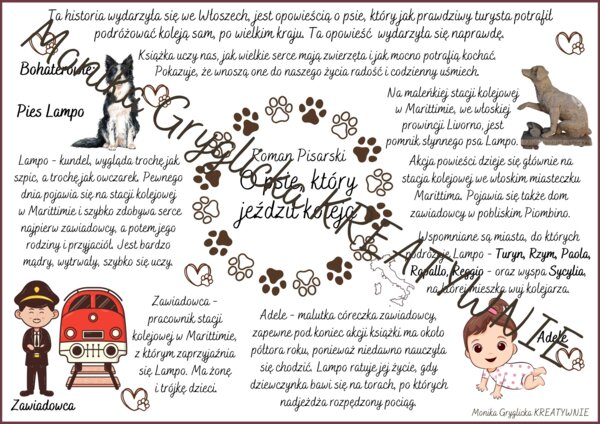 Ta historia wydarzyła się we Włoszech, jest opowieścią o psie, który jak prawdziwy turysta potrafił
podróżować koleją sam, po wielkim kraju. Ta opowieść wydarzyła się naprawdę.
Książka uczy nas, jak wielkie serce mają zwierzęta i jak mocno potrafią kochać.
Pokazuje, że wnoszą one do naszego życia radość i codzienny uśmiech.
Bohaterowie
Pies Lampo
Na maleńkiej stacji kolejowej
w Marittimie, we włoskiej
prowincji Livorno, jest
pomnik słynnego psa Lampo.
Lampo - kundel, wygląda trochę jak
szpic, a trochę jak owczarek. Pewnego
dnia pojawia się na stacji kolejowej
w Marittimie i szybko zdobywa serce
najpierw zawiadowcy, a potem jego
rodziny i przyjaciół. Jest bardzo
mądry, wytrwały, szybko się uczy.
Roman Pisarski
O psie, który
jeździł koleją
Akcja powieści dzieje się głównie na
stacji kolejowej we włoskim miasteczku
Marittima. Pojawia się także dom
zawiadowcy w pobliskim Piombino.
Wspomniane są miasta, do których
podróżuje Lampo - Turyn, Rzym, Paola,
Rapallo, Reggio - oraz wyspa Sycylia,
na której mieszka wuj kolejarza.
Zawiadowca -
pracownik stacji
kolejowej w Marittimie,
z którym zaprzyjaźnia
się Lampo. Ma żonę
i trójkę dzieci.
Zawiadowca
Adele - malutka córeczka zawiadowcy,
zapewne pod koniec akcji książki ma około
półtora roku, ponieważ niedawno nauczyła
się chodzić. Lampo ratuje jej życie, gdy
dziewczynka bawi się na torach, po których
nadjeżdża rozpędzony pociąg.
Adele
Monika Gryglicka KREATYWNIE
Monika Gryglicka KREATYWNIE